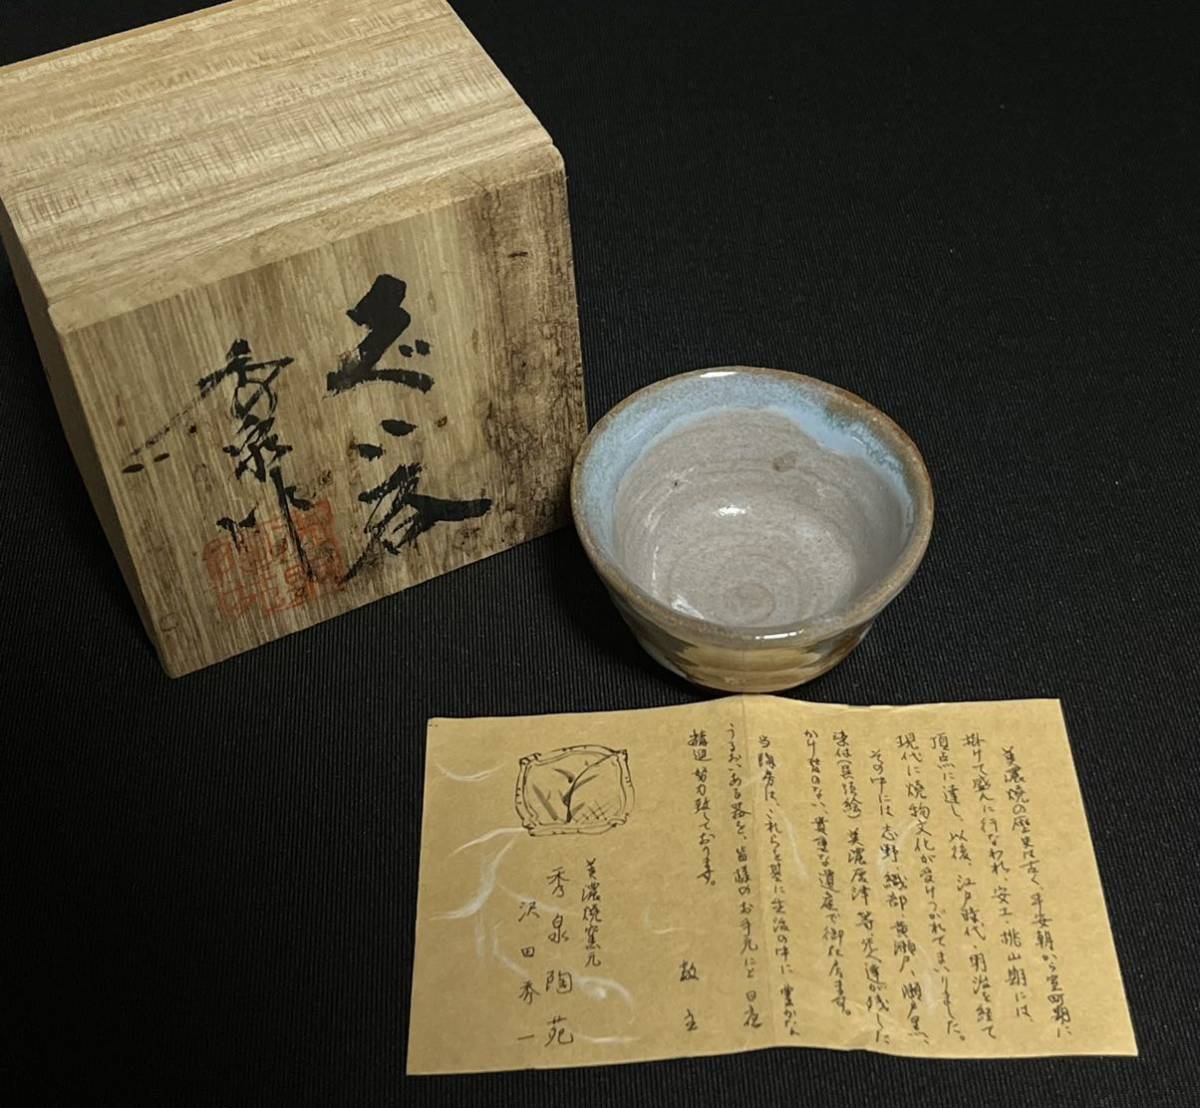 ぐい呑
秀泉作
美濃焼の歴史は古く、平安朝から室町期に
掛けて盛んに行なわれ、安土・桃山期には、
頂点に達し、以後、江戸時代・明治を経て
現代に焼物文化が受けつがれてまいりました。
その中には志野・織部・黄瀬戸・瀬戸黒、
染付(呉須絵)美濃唐津等、先人達が残した
かけ替のない、貴重な遺産で御在居ます。
当陶房は、これらを基に生活の中に豊かな
うるおいある器を、皆様のお手元にと日夜
精進努力致しております。
敬白
美濃焼窯元
秀泉陶苑
沢田秀一